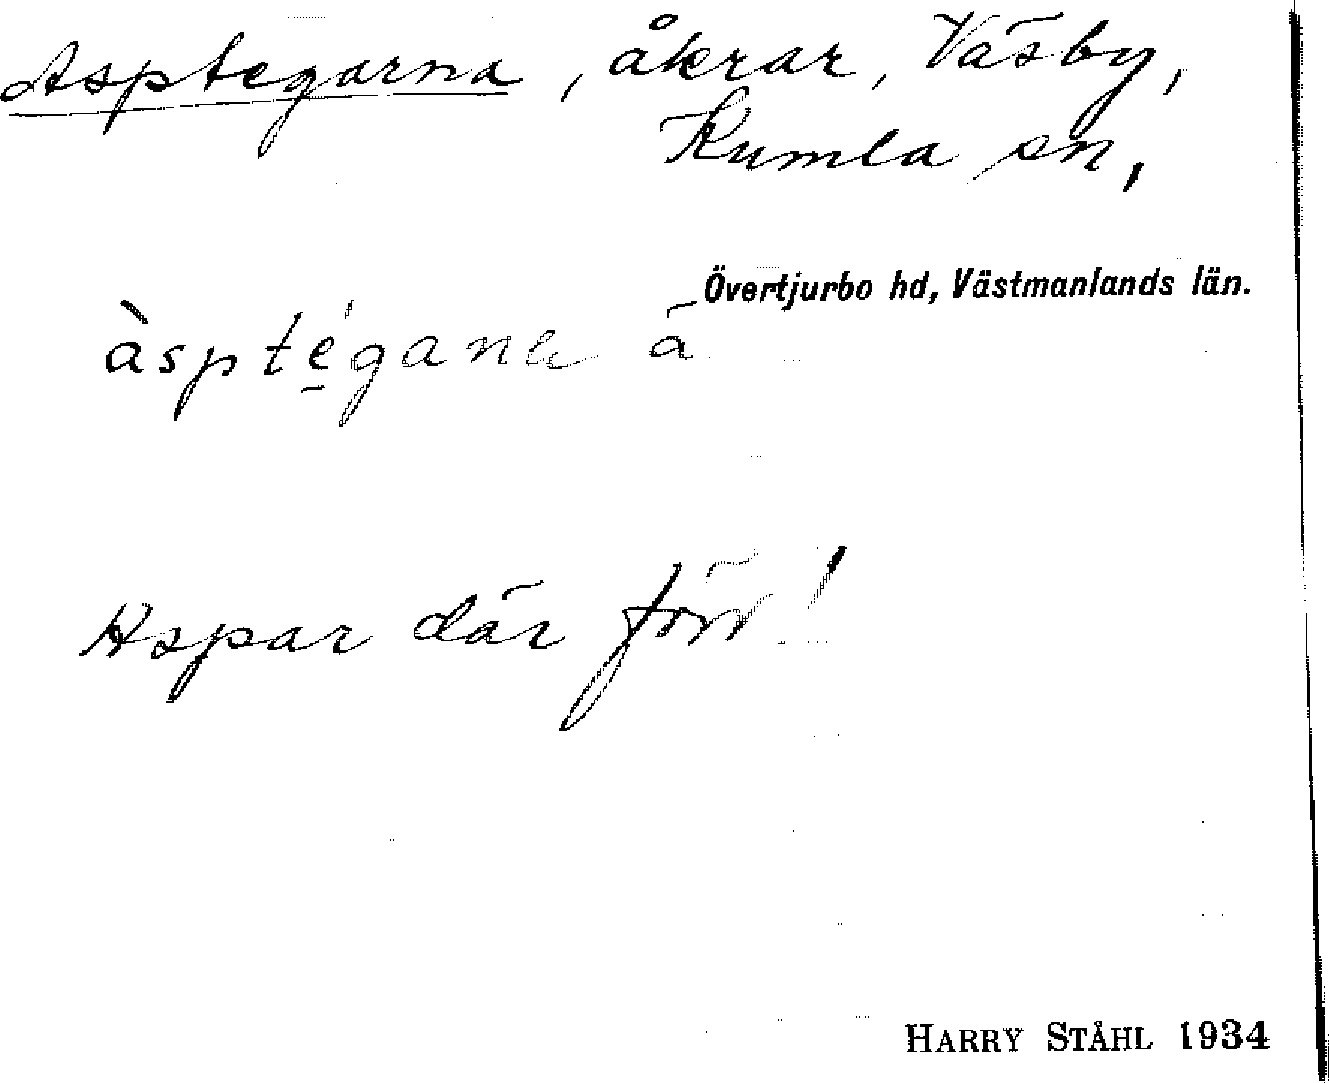 Asptegarna, åkrar, Väsby,
Kumla sn,
Övertjurbo hd, Västmanlands län.
àspte̱gana ā
Aspar där förr!
HARRY STÅHL 1934